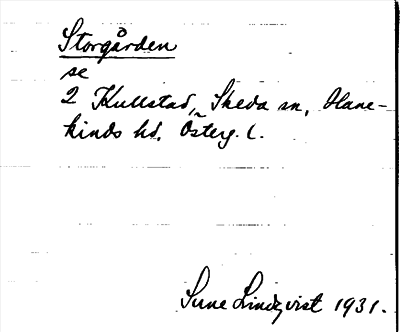 Storgården
se
2 Kullstad, Skeda sn, Hane-
kinds hd. Österg. l.
Sune Lindqvist 1931.